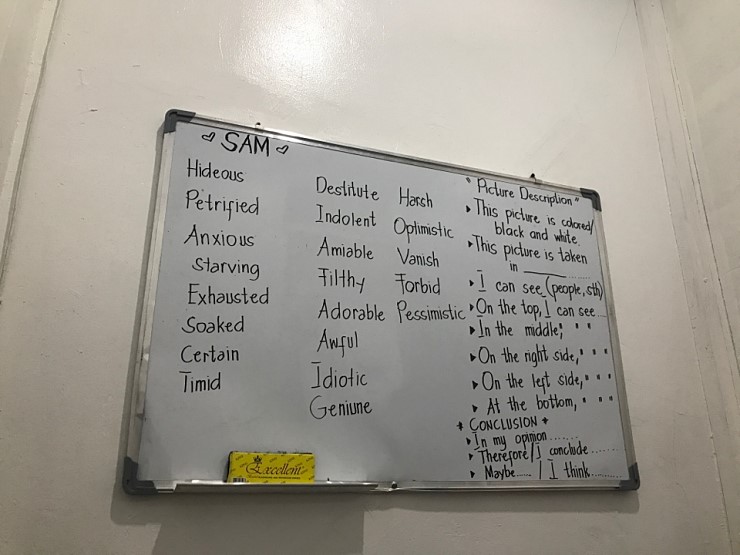 SAM
Hideous
Petrified
Anxious
Starving
Exhausted
Soaked
Certain
Timid
Destitute
Indolent
Amiable
Filthy
Adorable
Awful
Idiotic
Geniune
Harsh
Optimistic
Vanish
Forbid
Pessimistic
"Picture Description"
This picture is colored/
black and white.
This picture is taken
in __________......
I can see (people, sth)
On the top, I can see....
In the middle, " "
On the right side, " " "
On the left side, " " "
At the bottom, " " "
* CONCLUSION *
In my opinion.......
Therefore / I conclude........
Maybe...... / I think........
Excellent